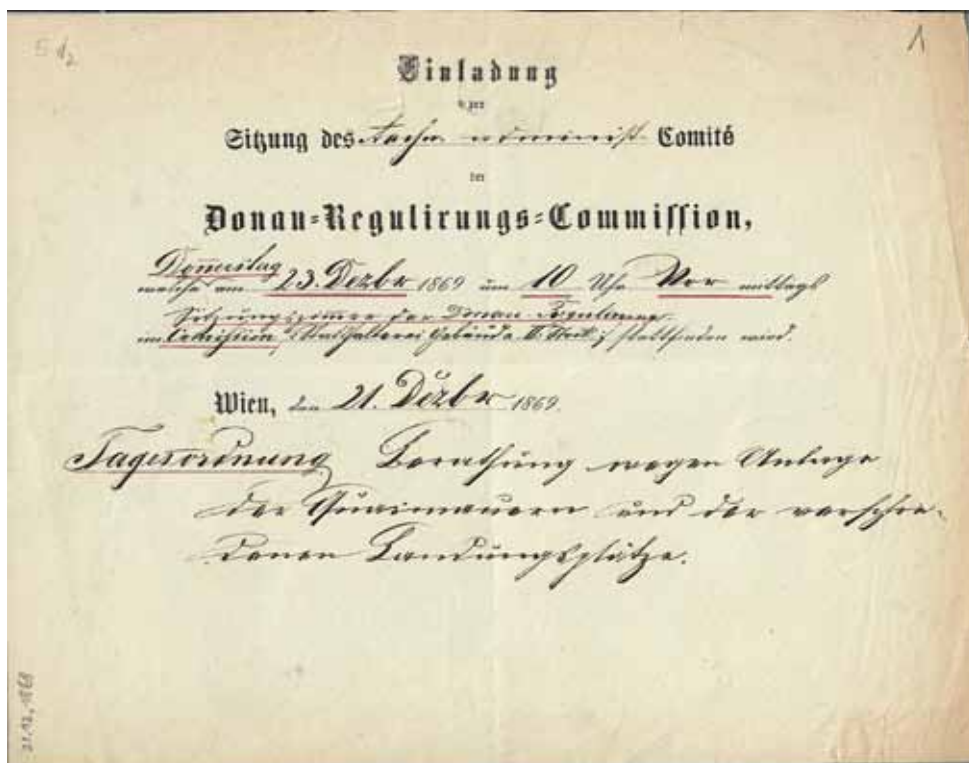 5 d2
1
Einladung
zur
Sitzung des techn. administ. Comité
der
Donau=Regulirungs=Commission,
Donnerstag
welche am 23. Dezbr 1869 um 10 Uhr Vor mittags
Sitzungszimmer der Donau Regulirungs
im Com̅ission, Statthalterei Gebäude II. Stock; stattfinden wird.
Wien, den 21. Dezbr 1869.
Tagesordnung Berathung wegen Anlage
der Quaimauern und der verschie-
denen Landungsplätze.